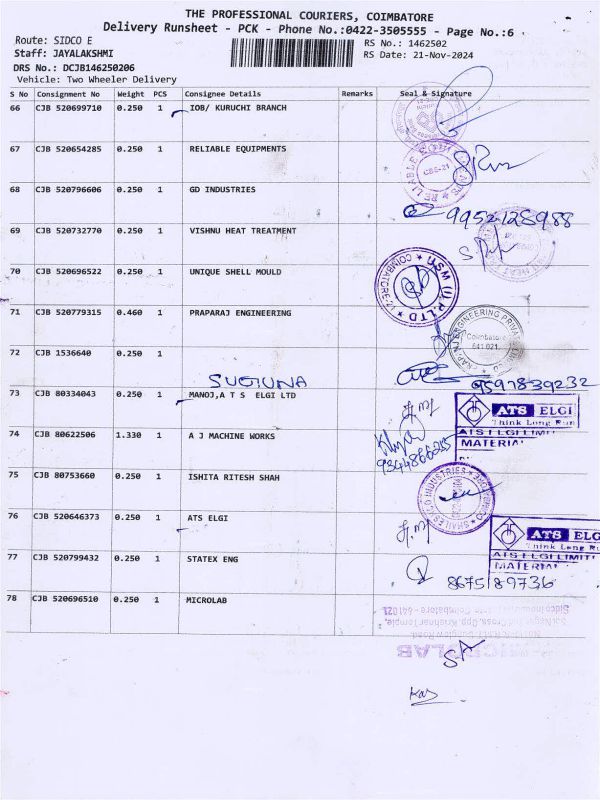 THE PROFESSIONAL COURIERS, COIMBATORE
Delivery Runsheet - PCK - Phone No.:0422-3505555 - Page No.:6
Route: SIDCO E
RS No.: 1462502
Staff: JAYALAKSHMI
RS Date: 21-Nov-2024
DRS No.: DCJB146250206
Vehicle: Two Wheeler Delivery
S No Consignment No Weight PCS Consignee Details Remarks Seal & Signature
66 CJB 520699710 0.250 1 IOB/ KURUCHI BRANCH
67 CJB 520654285 0.250 1 RELIABLE EQUIPMENTS
CBE-21
68 CJB 520796606 0.250 1 GD INDUSTRIES
9952128988
69 CJB 520732770 0.250 1 VISHNU HEAT TREATMENT
70 CJB 520696522 0.250 1 UNIQUE SHELL MOULD
71 CJB 520779315 0.460 1 PRAPARAJ ENGINEERING
Coimbatore
641 021
72 CJB 1536640 0.250 1
SUGUNA
9597839232
73 CJB 80334043 0.250 1 MANOJ,A T S ELGI LTD
ATS ELGI
Think Long Run
ATS ELGI LIMIT
MATERIAL
74 CJB 80622506 1.330 1 A J MACHINE WORKS
9344866255
75 CJB 80753660 0.250 1 ISHITA RITESH SHAH
76 CJB 520646373 0.250 1 ATS ELGI
ATS ELG
Think Long Run
ATS ELGI LIMIT
MATERIAL
77 CJB 520799432 0.250 1 STATEX ENG
8675189736
78 CJB 520696510 0.250 1 MICROLAB
SA